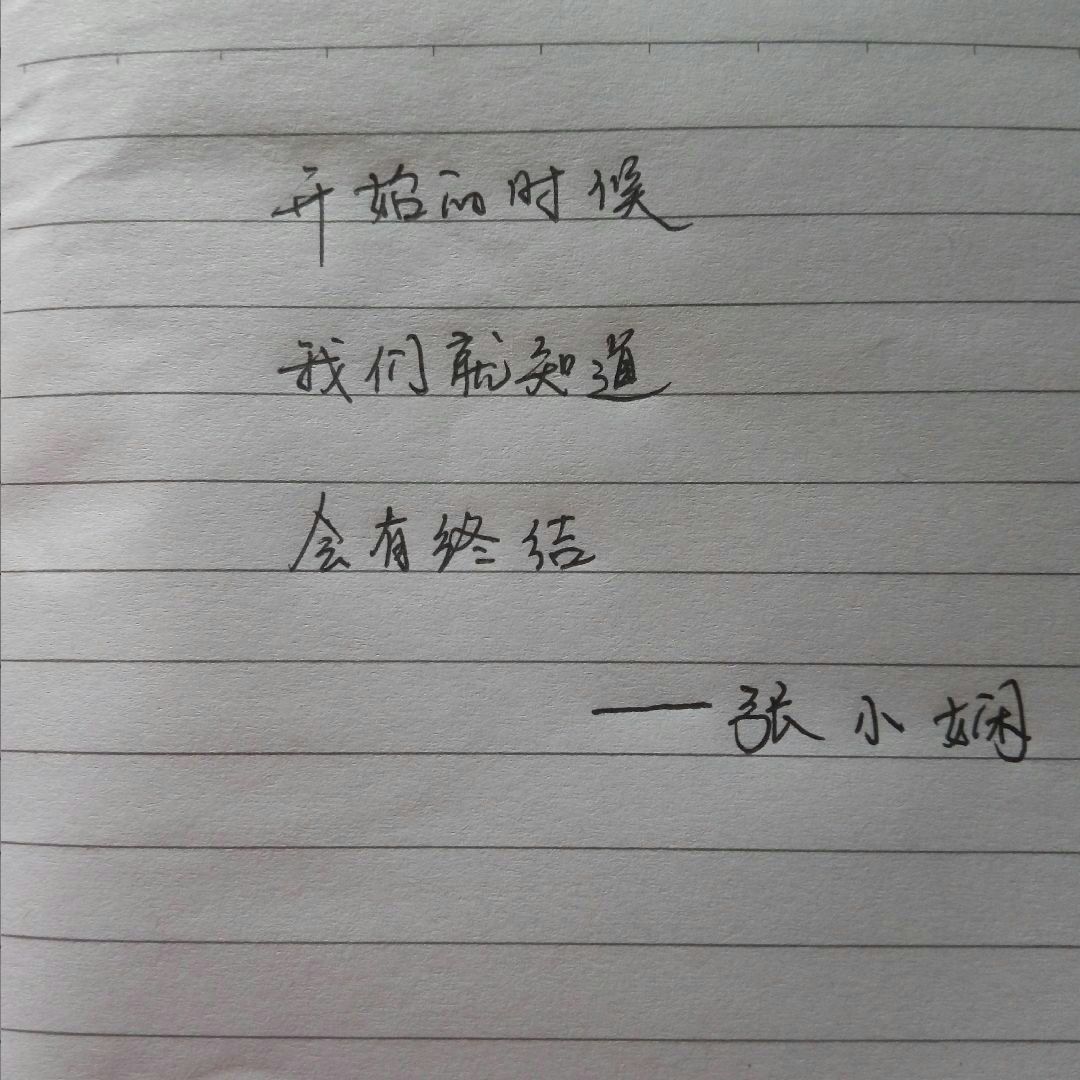 开始的时候
我们就知道
会有终结
——张小娴